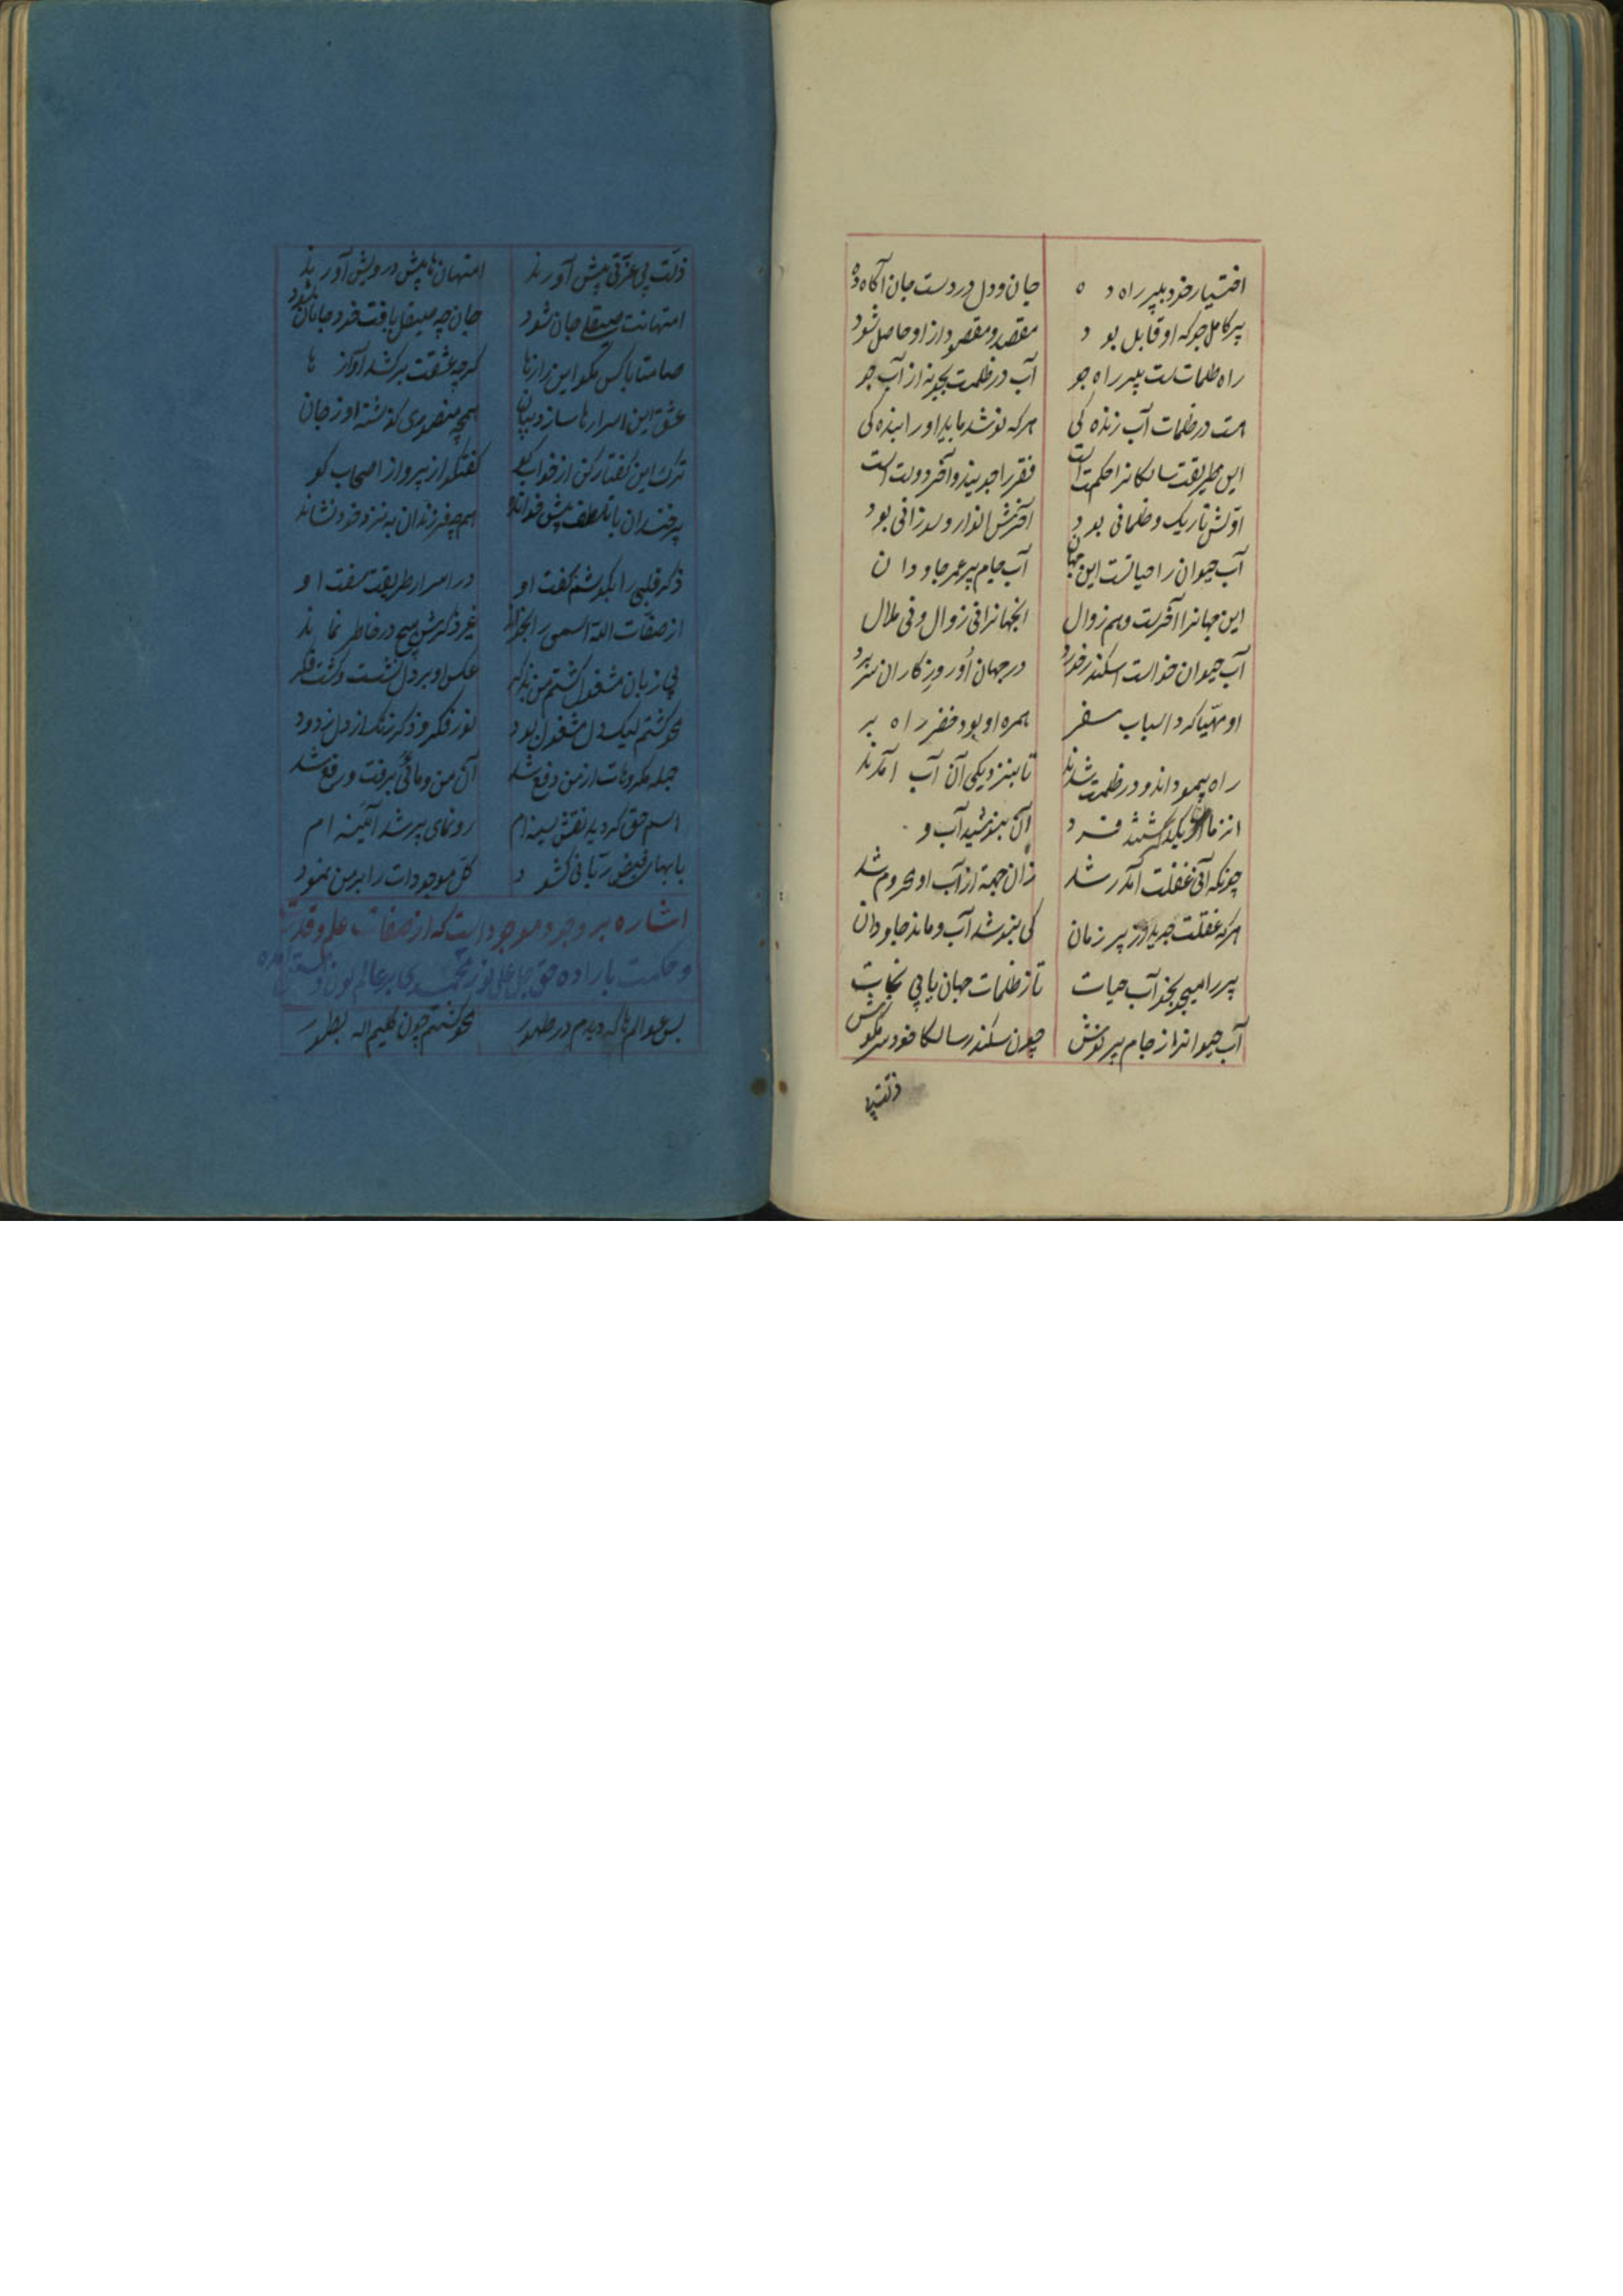 اختیار خود بپیر راه ده جان و دل در دست جان آکاه ده
پیر کامل جو که او قابل بود مقصد و مقصود از او حاصل شود
راه ظلمات است پیر راه جو آب در ظلمت بجو نه از آب جو
هست در ظلمات آب زنده کی هر که نوشد یابد او را بنده کی
این طریقت سالکانرا حکمت است فقر را جویند و آخر دولت است
اولش تاریک و ظلمانی بود آخرش انوار و نورانی بود
آب حیوان را حیاتست این جهان آب جام پیر عمر جاودان
این جهانرا آخرست و هم زوال انجهانرا نی زوال و نی ملال
آب حیوان خواست اسکندر خورد در جهان او روزکاران سر برد
او مهیا کرد اسباب سفر همره او بود خضر راه بر
راه پیمودند و در ظلمت شدند تا بنزدیکی آن آب آمدند
انزمان کشتند فرد آن بنوشید آب و
چونکه آنی غفلت آمد شد زان جهة از آب او محروم شد
هر که غفلت پیر زمان کی بنوشد آب و ماند جاودان
پیر را میجو بجو آب حیات تا ز ظلمات جهان یابی نجات
آب حیوانرا ز جام پیر نوش چون سکندر سالکا خود سر مکوش
ذلت
ذلت بی عزتی پیش آورند امتهان ها پیش درویش آورند
امتهانت صیقلی جان شود جان چه صیقل یافت خود جانان شود
صامتا با کس مکو این رازها کر چه عشقت برکشد آوازها
عشق این اسرارها سازد بیان همچه منصوری کذشته او ز جان
ترک این کفتار کن از خواب کو کفتکو از پیر و از اصحاب کو
پیر خندان با تلطف پیش خواند همچه فرزندان به نزد خود نشاند
ذکر قلبی را بکوشم کفت او در اسرار طریقت سفت او
از صفات الله اسمی را بخواند غیر ذکرش هیچ در خاطر نماند
بی زبان مشغول کشتم من بذکر عکس او بر دل نشست و کشت فکر
محو کشتم لیک دل مشغول بود نور فکر و ذکر زنک از دل زدود
جمله مکروهات از من دفع شد آن من و مائی برفت و رفع شد
اسم حق کردید نقش سینه ام رونمای پیر شد آئینه ام
بابهای فیض ربانی کشود کل موجودات را بر من نمود
اشاره بر وجود موجود است که از صفات علم و قدرت
و حکمت باراده حق جل علی نور محمدی بر عالم
بس عوالم ها که دیدم در ظهور محو کشتم چون کلیم اله بطور